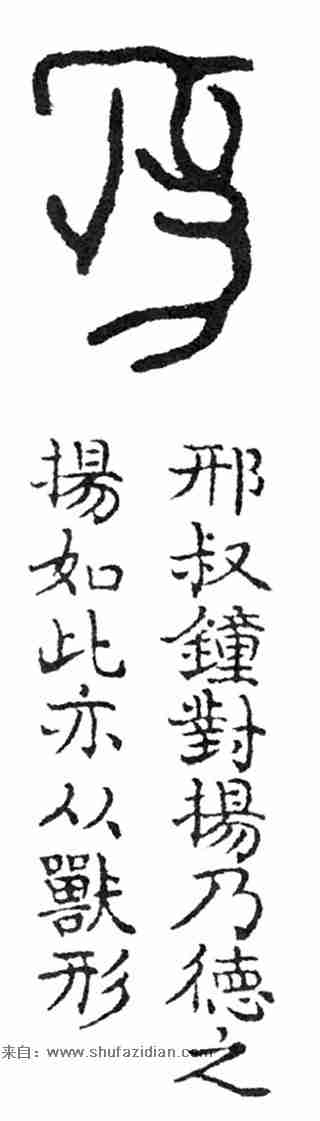 邢叔鐘對揚乃德之
揚如此亦从獸形
来自：www.shufazidian.com